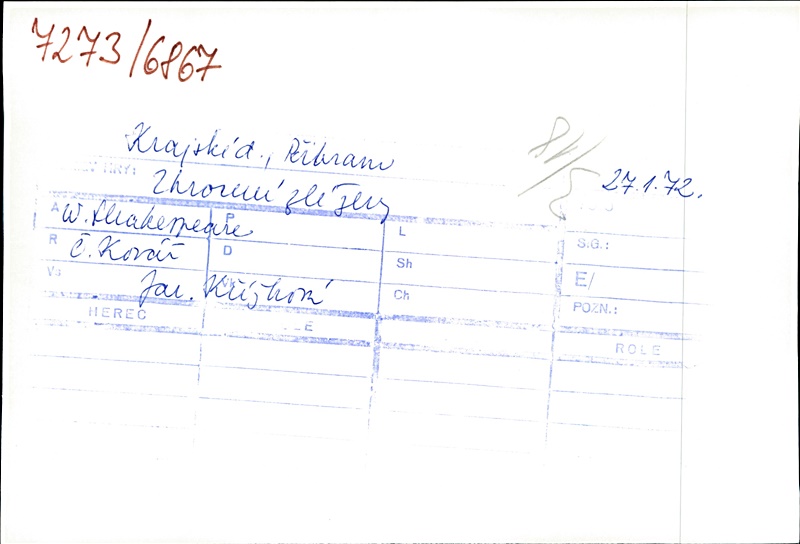 7273/6867
Krajské d., Příbram
27.1.72.
Zkrocení zlé ženy
A W. Shakespeare P L S.G.:
R Č. Kovář D Sh E/
Vs Jar. Křížková Ch POZN.:
HEREC LE ROLE